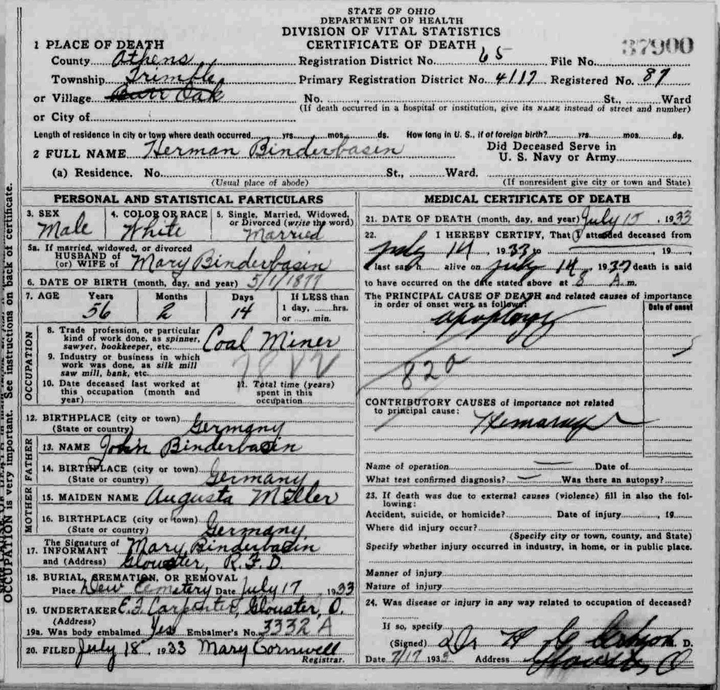 STATE OF OHIO
DEPARTMENT OF HEALTH
DIVISION OF VITAL STATISTICS
CERTIFICATE OF DEATH
37900
1 PLACE OF DEATH
County Athens Registration District No. 65 File No.
Township Trimble Primary Registration District No. 4117 Registered No. 87
or Village Burr Oak No. St., Ward
or City of (If death occurred in a hospital or institution, give its NAME instead of street and number)
Length of residence in city or town where death occurred. yrs. mos. ds. How long in U. S., if of foreign birth? yrs. mos. ds.
2 FULL NAME Herman Binderbasin Did Deceased Serve in U. S. Navy or Army
(a) Residence. No. St., Ward.
(Usual place of abode) (If nonresident give city or town and State)
PERSONAL AND STATISTICAL PARTICULARS
3. SEX Male 4. COLOR OR RACE White 5. Single, Married, Widowed, or Divorced (write the word) Married
5a. If married, widowed, or divorced
HUSBAND of
(or) WIFE of Mary Binderbasin
6. DATE OF BIRTH (month, day, and year) 5/1/1877
7. AGE Years 56 Months 2 Days 14 If LESS than 1 day, hrs. or min.
OCCUPATION
8. Trade profession, or particular kind of work done, as spinner, sawyer, bookkeeper, etc. Coal Miner
9. Industry or business in which work was done, as silk mill saw mill, bank, etc.
10. Date deceased last worked at this occupation (month and year)
11. Total time (years) spent in this occupation
12. BIRTHPLACE (city or town)
(State or country) Germany
FATHER
13. NAME John Binderbasin
14. BIRTHPLACE (city or town)
(State or country) Germany
MOTHER
15. MAIDEN NAME Augusta Miller
16. BIRTHPLACE (city or town)
(State or country) Germany
17. The Signature of INFORMANT Mary Binderbasin
and (Address) Glouster, R.F.D.
18. BURIAL, CREMATION, OR REMOVAL
Place New Cemetery Date July 17, 1933
19. UNDERTAKER E.F. Carpenter, Glouster, O.
(Address)
19a. Was body embalmed Yes Embalmer's No. 3332 A
20. FILED July 18, 1933 Mary Cornwell
Registrar.
MEDICAL CERTIFICATE OF DEATH
21. DATE OF DEATH (month, day, and year) July 15, 1933
22. I HEREBY CERTIFY, That I attended deceased from
July 14, 1933 to 19
I last saw h alive on July 14, 1933 death is said
to have occurred on the date stated above at 8 A.m.
THE PRINCIPAL CAUSE OF DEATH and related causes of importance in order of onset were as follows:
Date of onset
Apoplexy
82a
CONTRIBUTORY CAUSES of importance not related to principal cause:
Name of operation Date of
What test confirmed diagnosis? Was there an autopsy?
23. If death was due to external causes (violence) fill in also the following:
Accident, suicide, or homicide? Date of injury, 19
Where did injury occur?
(Specify city or town, county, and State)
Specify whether injury occurred in industry, in home, or in public place.
Manner of injury
Nature of injury
24. Was disease or injury in any way related to occupation of deceased?
If so, specify
(Signed) M. D.
Date 7/17 1933 Address Glouster O
OCCUPATION is very important. See instructions on back of certificate.